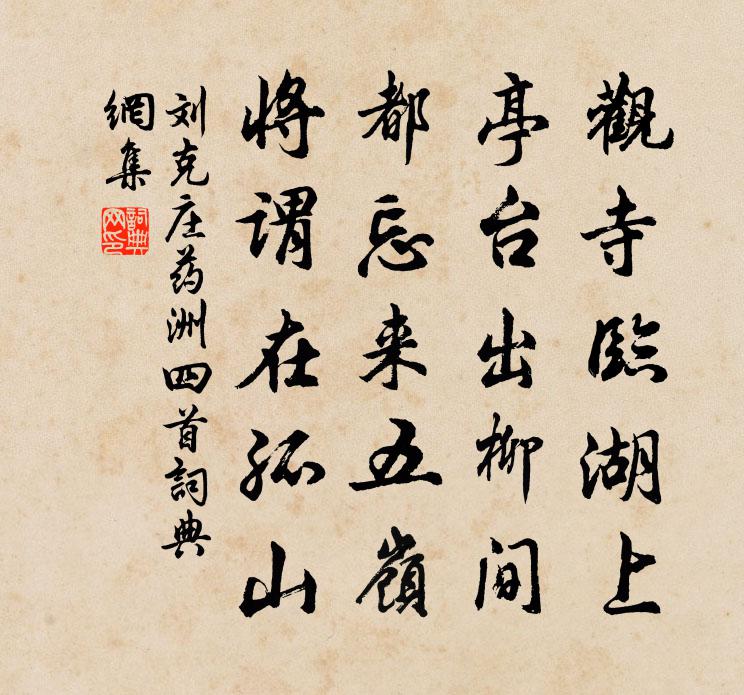 觀寺臨湖上
亭台出柳間
都忘来五嶺
将謂在孤山
刘克庄药洲四首詞典
網集
詞典網印